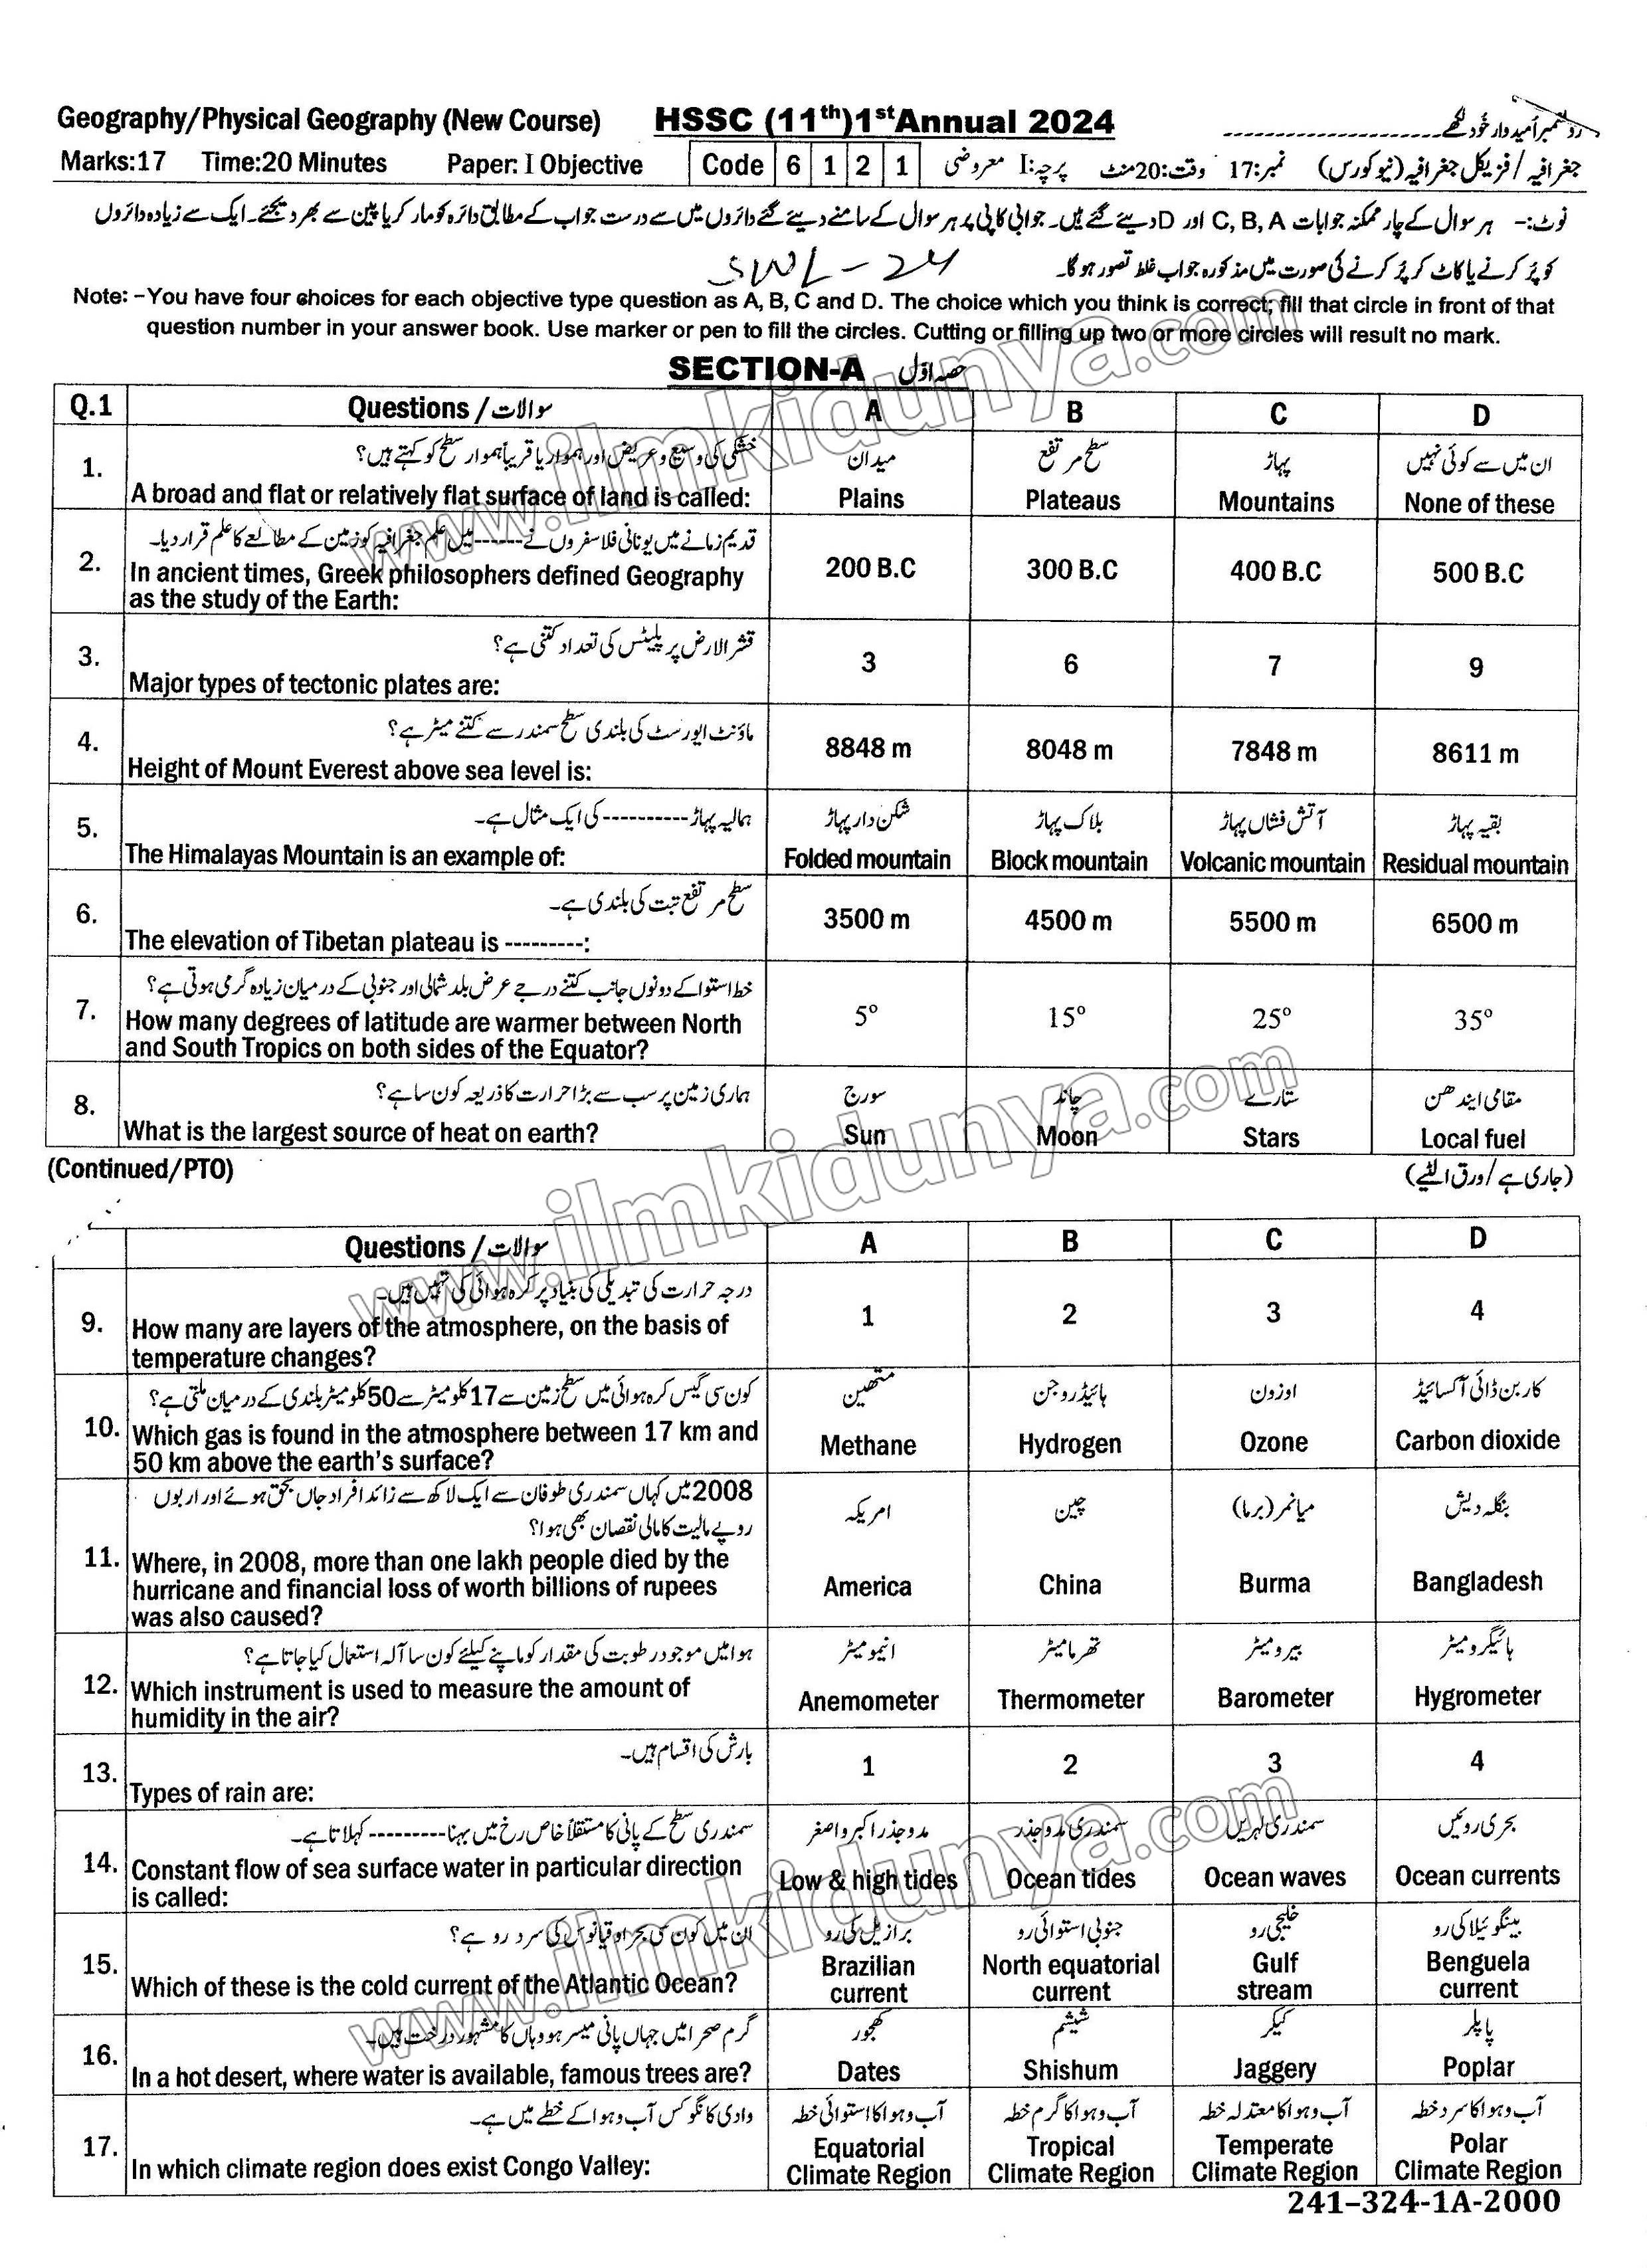 Geography/Physical Geography (New Course) HSSC (11th)1st Annual 2024 رول نمبر امیدوار خود لکھے --------------------
Marks:17 Time:20 Minutes Paper: I Objective Code 6 1 2 1 جغرافیہ / فزیکل جغرافیہ (نیو کورس) نمبر:17 وقت:20 منٹ پرچہ:I معروضی
نوٹ:- ہر سوال کے چار ممکنہ جوابات C, B, A اور D دیئے گئے ہیں۔ جوابی کاپی پر ہر سوال کے سامنے دیئے گئے دائروں میں سے درست جواب کے مطابق دائرہ کو مارکر یا پین سے بھر دیجئے۔ ایک سے زیادہ دائروں
کو پُر کرنے یا کاٹ کر پُر کرنے کی صورت میں مذکورہ جواب غلط تصور ہوگا۔
SWL-24
Note: -You have four choices for each objective type question as A, B, C and D. The choice which you think is correct; fill that circle in front of that
question number in your answer book. Use marker or pen to fill the circles. Cutting or filling up two or more circles will result no mark.
SECTION-A حصہ اوّل
Q.1 Questions / سوالات A B C D
1. خشکی کی وسیع و عریض اور ہموار یا قریباً ہموار سطح کو کہتے ہیں؟ میدان سطح مرتفع پہاڑ ان میں سے کوئی نہیں
A broad and flat or relatively flat surface of land is called: Plains Plateaus Mountains None of these
2. قدیم زمانے میں یونانی فلاسفروں نے ------- میں علم جغرافیہ کو زمین کے مطالعے کا علم قرار دیا۔
In ancient times, Greek philosophers defined Geography 200 B.C 300 B.C 400 B.C 500 B.C
as the study of the Earth:
3. قشر الارض پر پلیٹس کی تعداد کتنی ہے؟ 3 6 7 9
Major types of tectonic plates are:
4. ماؤنٹ ایورسٹ کی بلندی سطح سمندر سے کتنے میٹر ہے؟ 8848 m 8048 m 7848 m 8611 m
Height of Mount Everest above sea level is:
5. ہمالیہ پہاڑ ---------- کی ایک مثال ہے۔ شکن دار پہاڑ بلاک پہاڑ آتش فشاں پہاڑ بقیہ پہاڑ
The Himalayas Mountain is an example of: Folded mountain Block mountain Volcanic mountain Residual mountain
6. سطح مرتفع تبت کی بلندی ہے۔ 3500 m 4500 m 5500 m 6500 m
The elevation of Tibetan plateau is ---------:
7. خط استوا کے دونوں جانب کتنے درجے عرض بلد شمالی اور جنوبی کے درمیان زیادہ گرمی ہوتی ہے؟
How many degrees of latitude are warmer between North 5° 15° 25° 35°
and South Tropics on both sides of the Equator?
8. ہماری زمین پر سب سے بڑا حرارت کا ذریعہ کون سا ہے؟ سورج چاند ستارے مقامی ایندھن
What is the largest source of heat on earth? Sun Moon Stars Local fuel
(Continued/PTO) (جاری ہے / ورق الٹیے)
Questions / سوالات A B C D
9. درجہ حرارت کی تبدیلی کی بنیاد پر کرہ ہوائی کی تہیں ہیں۔
How many are layers of the atmosphere, on the basis of 1 2 3 4
temperature changes?
10. کون سی گیس کرہ ہوائی میں سطح زمین سے 17 کلومیٹر سے 50 کلومیٹر بلندی کے درمیان ملتی ہے؟ متھین ہائیڈروجن اوزون کاربن ڈائی آکسائیڈ
Which gas is found in the atmosphere between 17 km and Methane Hydrogen Ozone Carbon dioxide
50 km above the earth's surface?
11. 2008 میں کہاں سمندری طوفان سے ایک لاکھ سے زائد افراد جاں بحق ہوئے اور اربوں امریکہ چین میانمر (برما) بنگلہ دیش
روپے مالیت کا مالی نقصان بھی ہوا؟
Where, in 2008, more than one lakh people died by the
hurricane and financial loss of worth billions of rupees America China Burma Bangladesh
was also caused?
12. ہوا میں موجود رطوبت کی مقدار کو ماپنے کیلئے کون سا آلہ استعمال کیا جاتا ہے؟ انیمومیٹر تھرمامیٹر بیرومیٹر ہائیگرومیٹر
Which instrument is used to measure the amount of Anemometer Thermometer Barometer Hygrometer
humidity in the air?
13. بارش کی اقسام ہیں۔ 1 2 3 4
Types of rain are:
14. سمندری سطح کے پانی کا مستقلاً خاص رخ میں بہنا --------- کہلاتا ہے۔ مدوجذر اکبر واصغر سمندری مدوجذر سمندری لہریں بحری روئیں
Constant flow of sea surface water in particular direction Low & high tides Ocean tides Ocean waves Ocean currents
is called:
15. ان میں کون سی بحر اوقیانوس کی سرد رو ہے؟ برازیل کی رو جنوبی استوائی رو خلیجی رو بینگوئیلا کی رو
Which of these is the cold current of the Atlantic Ocean? Brazilian current North equatorial current Gulf stream Benguela current
16. گرم صحرا میں جہاں پانی میسر ہو وہاں کا مشہور درخت ہیں۔ کھجور شیشم کیکر پاپلر
In a hot desert, where water is available, famous trees are? Dates Shishum Jaggery Poplar
17. وادی کانگو کس آب و ہوا کے خطے میں ہے۔ آب و ہوا کا استوائی خطہ آب و ہوا کا گرم خطہ آب و ہوا کا معتدلہ خطہ آب و ہوا کا سرد خطہ
In which climate region does exist Congo Valley: Equatorial Climate Region Tropical Climate Region Temperate Climate Region Polar Climate Region
241-324-1A-2000
www.ilmkidunya.com
www.ilmkidunya.com
www.ilmkidunya.com